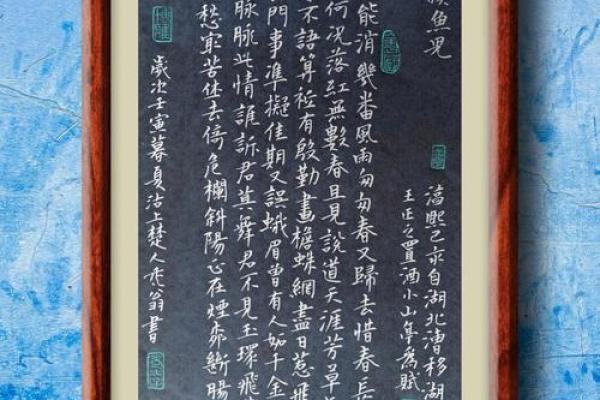 魚兒
湻熙己亥自湖北漕移湖
王正之置酒小山亭為賦
能消幾番風雨匆匆春又歸去惜春長
何況落紅無數春且見說道天涯芳草
不語算祗有殷勤畫檐蛛網盡日惹飛
門事準擬佳期又誤蛾眉曾有人妒千金
脈脈此情誰訴君莫舞君不見玉環飛
愁最苦休去倚危欄斜陽正在煙柳斷腸
歲次壬寅暮夏沽上楚人禿翁書